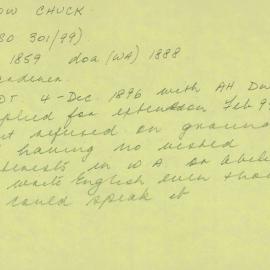 OW CHUCK.
SO 301/99)
1859 doa (WA) 1888
gardener.
DT 4-Dec. 1896 with AH Du
plied for extension Feb 99
t refused on ground
having no vested
terests in WA or abili
write English even thou
could speak it